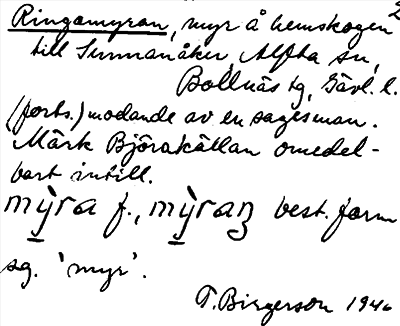 2
Ringamyran, myr å hemskogen
till Sunnanåker, Alfta sn,
Bollnäs tg, Gävl. l.
(forts.) modande av en sagesman.
Märk Björakällan omedel-
bart intill.
mỳra f., mỳraɴ best. form
sg. 'myr'.
T. Birgerson 1946